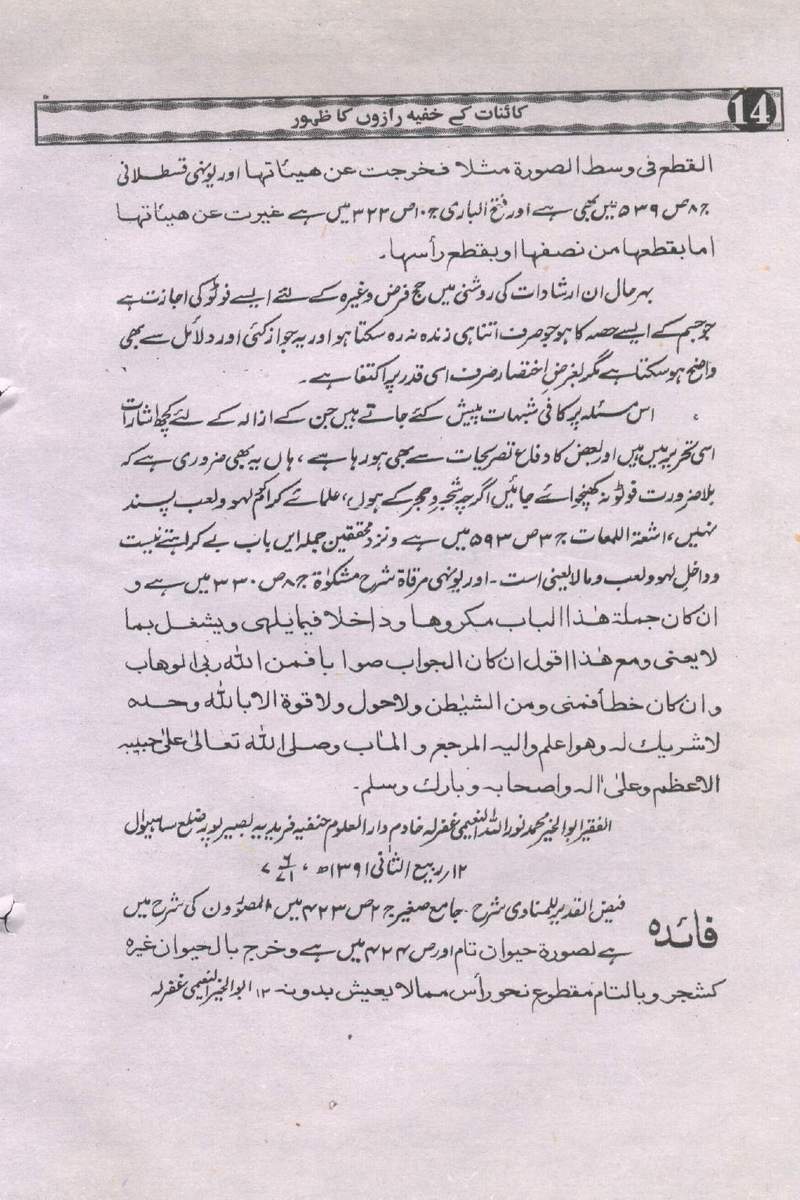 14
کائنات کے خفیہ رازوں کا ظہور
القطع فی وسط الصورة مثلا فخرجت عن هیئاتها اور یونہی قسطلانی
ج ۸ ص ۵۳۹ میں بھی ہے اور فتح الباری ج ۱۰ ص ۳۲۲ میں ہے غیرت عن هیئاتها
اما بقطعها من نصفها او بقطع رأسها۔
بہرحال ان ارشادات کی روشنی میں حج فرض وغیرہ کے لئے ایسے فوٹو کی اجازت ہے
جو جسم کے ایسے حصہ کا ہو جو صرف اتنا ہی زندہ نہ رہ سکتا ہو اور یہ جواز کئی اور دلائل سے بھی
واضح ہو سکتا ہے مگر بغرضِ اختصار صرف اسی قدر پر اکتفا ہے۔
اس مسئلہ پر کافی شبہات پیش کئے جاتے ہیں جن کے ازالہ کے لئے کچھ اشارات
اسی تحریر میں ہیں اور بعض کا دفاع تصریحات سے بھی ہو رہا ہے، ہاں یہ بھی ضروری ہے کہ
بلا ضرورت فوٹو نہ کھنچوائے جائیں اگرچہ شجر و حجر کے ہوں، علمائے کرام لہو و لعب پسند
نہیں، اشعۃ اللمعات ج ۳ ص ۵۹۳ میں ہے و نزد محققین جملہ ایں باب بے کراہتے نیست
و داخل لہو و لعب و مالایعنی است۔ اور یونہی مرقاۃ شرح مشکوٰۃ ج ۸ ص ۳۳۰ میں ہے و
ان کان جملة هٰذا الباب مکروها وداخلا فیما یلهی ویشغل بما
لا یعنی ومع هٰذا اقول ان کان الجواب صوابا فمن الله ربی الوهاب
وان کان خطأ فمنی ومن الشیطٰن ولا حول ولا قوة الا بالله وحده
لا شریك له وهو اعلم والیه المرجع والمآب وصلی الله تعالیٰ علیٰ حبیبه
الاعظم وعلیٰ اٰله واصحابه وبارك وسلم۔
الفقیر ابوالخیر محمد نور اللہ النعیمی غفرلہ خادم دارالعلوم حنفیہ فریدیہ بصیرپور ضلع ساہیوال
۱۲ ربیع الثانی ۱۳۹۱ھ، ۷/۶/۷۱
فائدہ فیض القدیر للمناوی شرح جامع صغیر ج ۲ ص ۴۲۳ میں المصورون کی شرح میں
ہے لصورة حیوان تام اور ص ۴۲۴ میں ہے وخرج بالحیوان غیره
کشجر وبالتام مقطوع نحو رأس مما لا یعیش بدونه ۱۲ ابوالخیر النعیمی غفرلہ